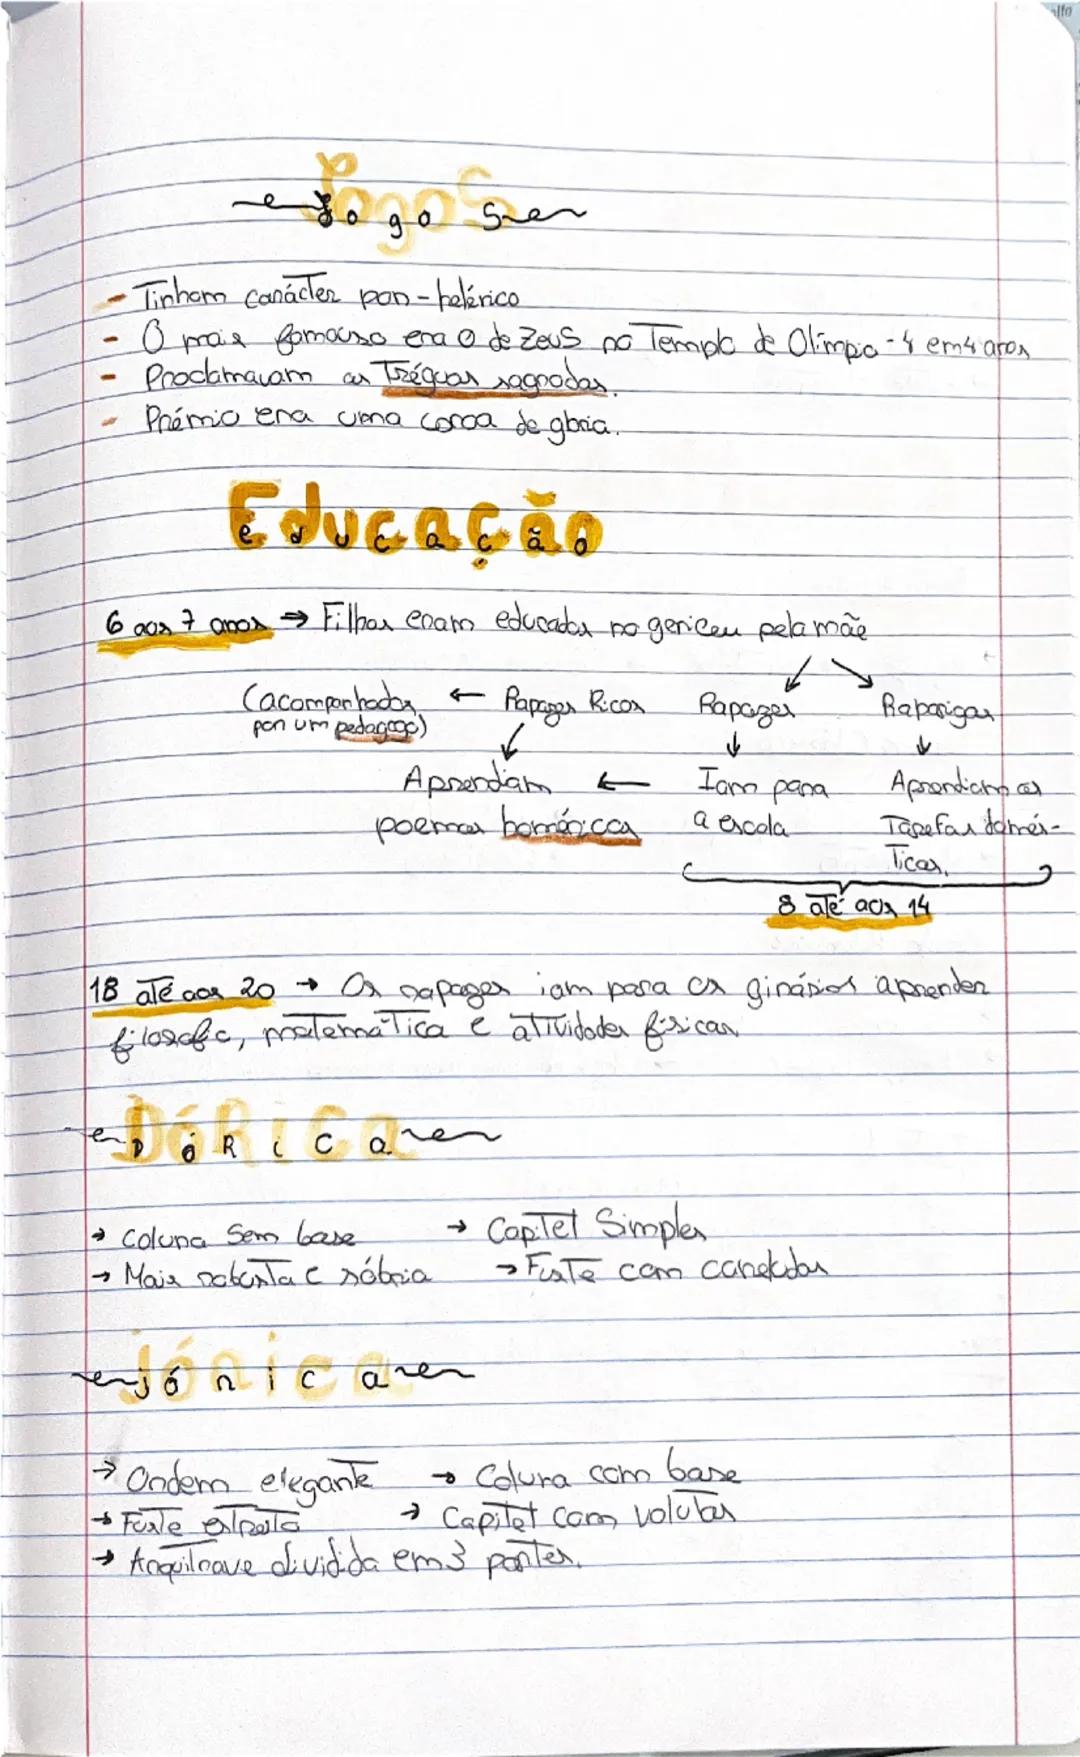 Jogos
- Tinham carácter pan-helénico
- O mais famouso era o de Zeus no Templo de Olímpia - 4 em 4 anos
- Proclamavam as Tréguas sagradas.
- Prémio era uma coroa de gloria.
Educação
6 aos 7 anos → Filhos eram educados no gericeu pela mãe
(acompanhados por um pedagogo) ← Rapazes Ricos Rapazes Raparigas
Aprendiam ← Iam para Aprendiam as
poemas homéricos a escola Tarefas domés-
Ticas.
8 até aos 14
18 até aos 20 → Os rapazes iam para os ginásios aprender
filosofia, matemática e atividades físicas
Dórica
→ Coluna Sem base → Capitel Simples
→ Mais robusta e sóbria → Fuste com caneladas
jónica
→ Ordem elegante → Coluna com base
→ Fuste estreito → Capitel com volutas
→ Arquitrave dividida em 3 partes.